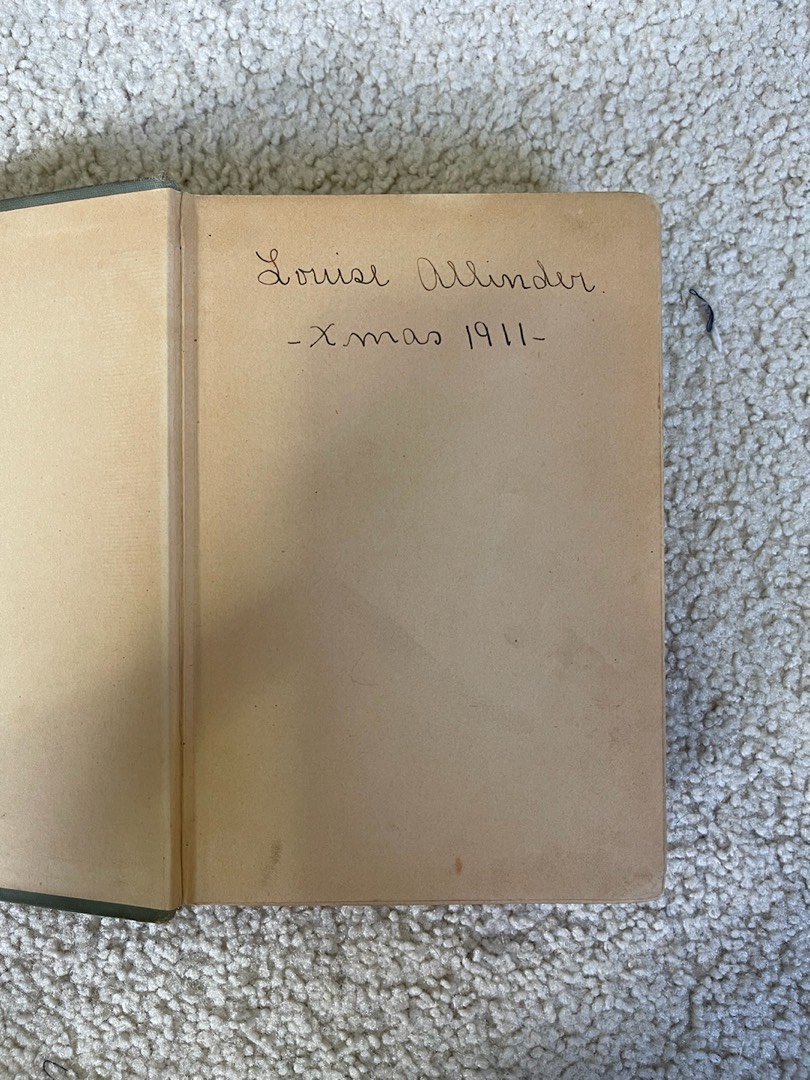 Louise Allinder.
-Xmas 1911-